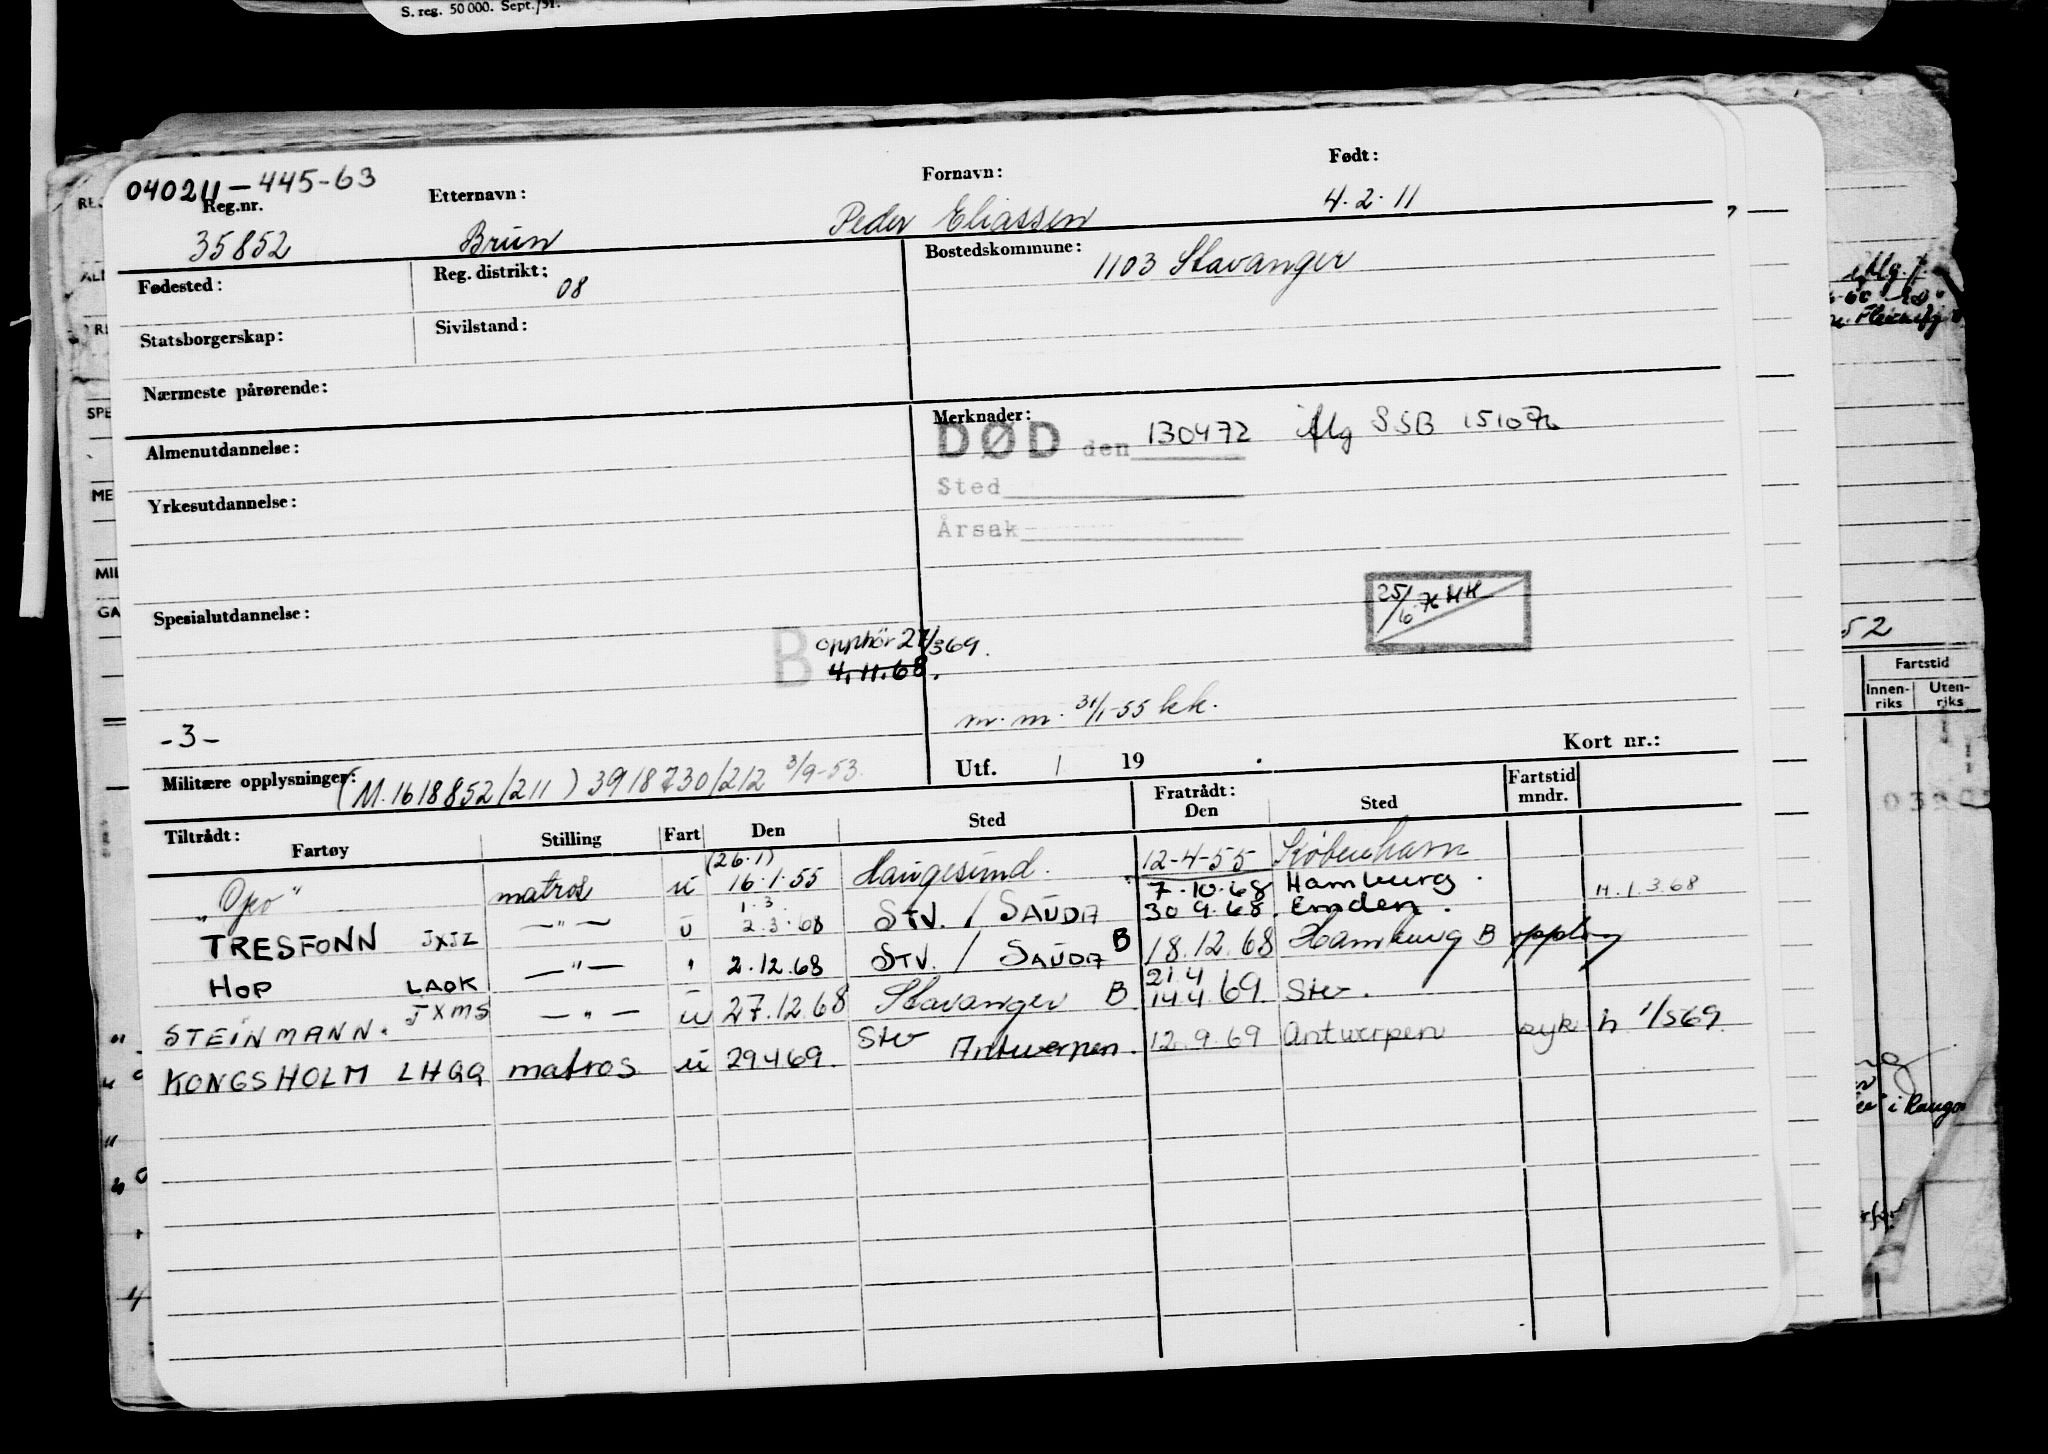 S. reg. 50 000. Sept./51.
040211-445-63
Reg.nr. Etternavn: Fornavn: Født:
35852 Brun Peder Eliassen 4.2.11
Fødested: Reg. distrikt: 08 Bostedskommune: 1103 Stavanger
Statsborgerskap: Sivilstand:
Nærmeste pårørende:
Almenutdannelse: Merknader:
DØD den 130472 iflg SSB 151076
Yrkesutdannelse: Sted
Årsak
Spesialutdannelse: 25/10 76 HK
B opphör 27/369.
4.11.68.
-3- m.m. 31/1-55 kk.
Militære opplysninger: (M.1618852/211) 3918730/212 3/9-53 Utf. / 19 Kort nr.:
Tiltrådt: Fratrådt: Fartstid mndr.
Fartøy Stilling Fart Den Sted Den Sted
"Opo" matros u (26.1) 16.1.55 Haugesund. 12-4-55 København
TRESFONN JXJZ —"— u 1.3. 2.3.68 STV. / SAUDA 7.10.68 30 9.68. Hamburg. Emden. H.1.3.68
HOP LAOK —"— " 2.12.68 STV. / SAUDA B 18.12.68 Hamburg B
STEINMANN. JXMS —"— u 27.12.68 Stavanger B 21.4 14.4.69. Stv.
KONGSHOLM LHQQ matros u 29.4.69. Stv Antwerpen. 12.9.69 Antwerpen syk h 1/569.
52
Fartstid
Innen-riks Uten-riks